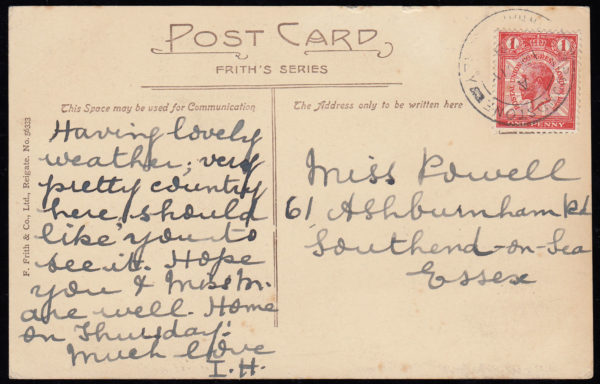 POST CARD
FRITH'S SERIES
This Space may be used for Communication
The Address only to be written here
F. Frith & Co., Ltd., Reigate. No. 5633
Having lovely
weather; very
pretty country
here, should
like you to
see it. Hope
you & Miss M.
are well. Home
on Thursday.
Much love
I.H.
Miss Powell
61 Ashburnham Rd
Southend-on-Sea
Essex
1
1
POSTAL UNION CONGRESS LONDON
PENNY